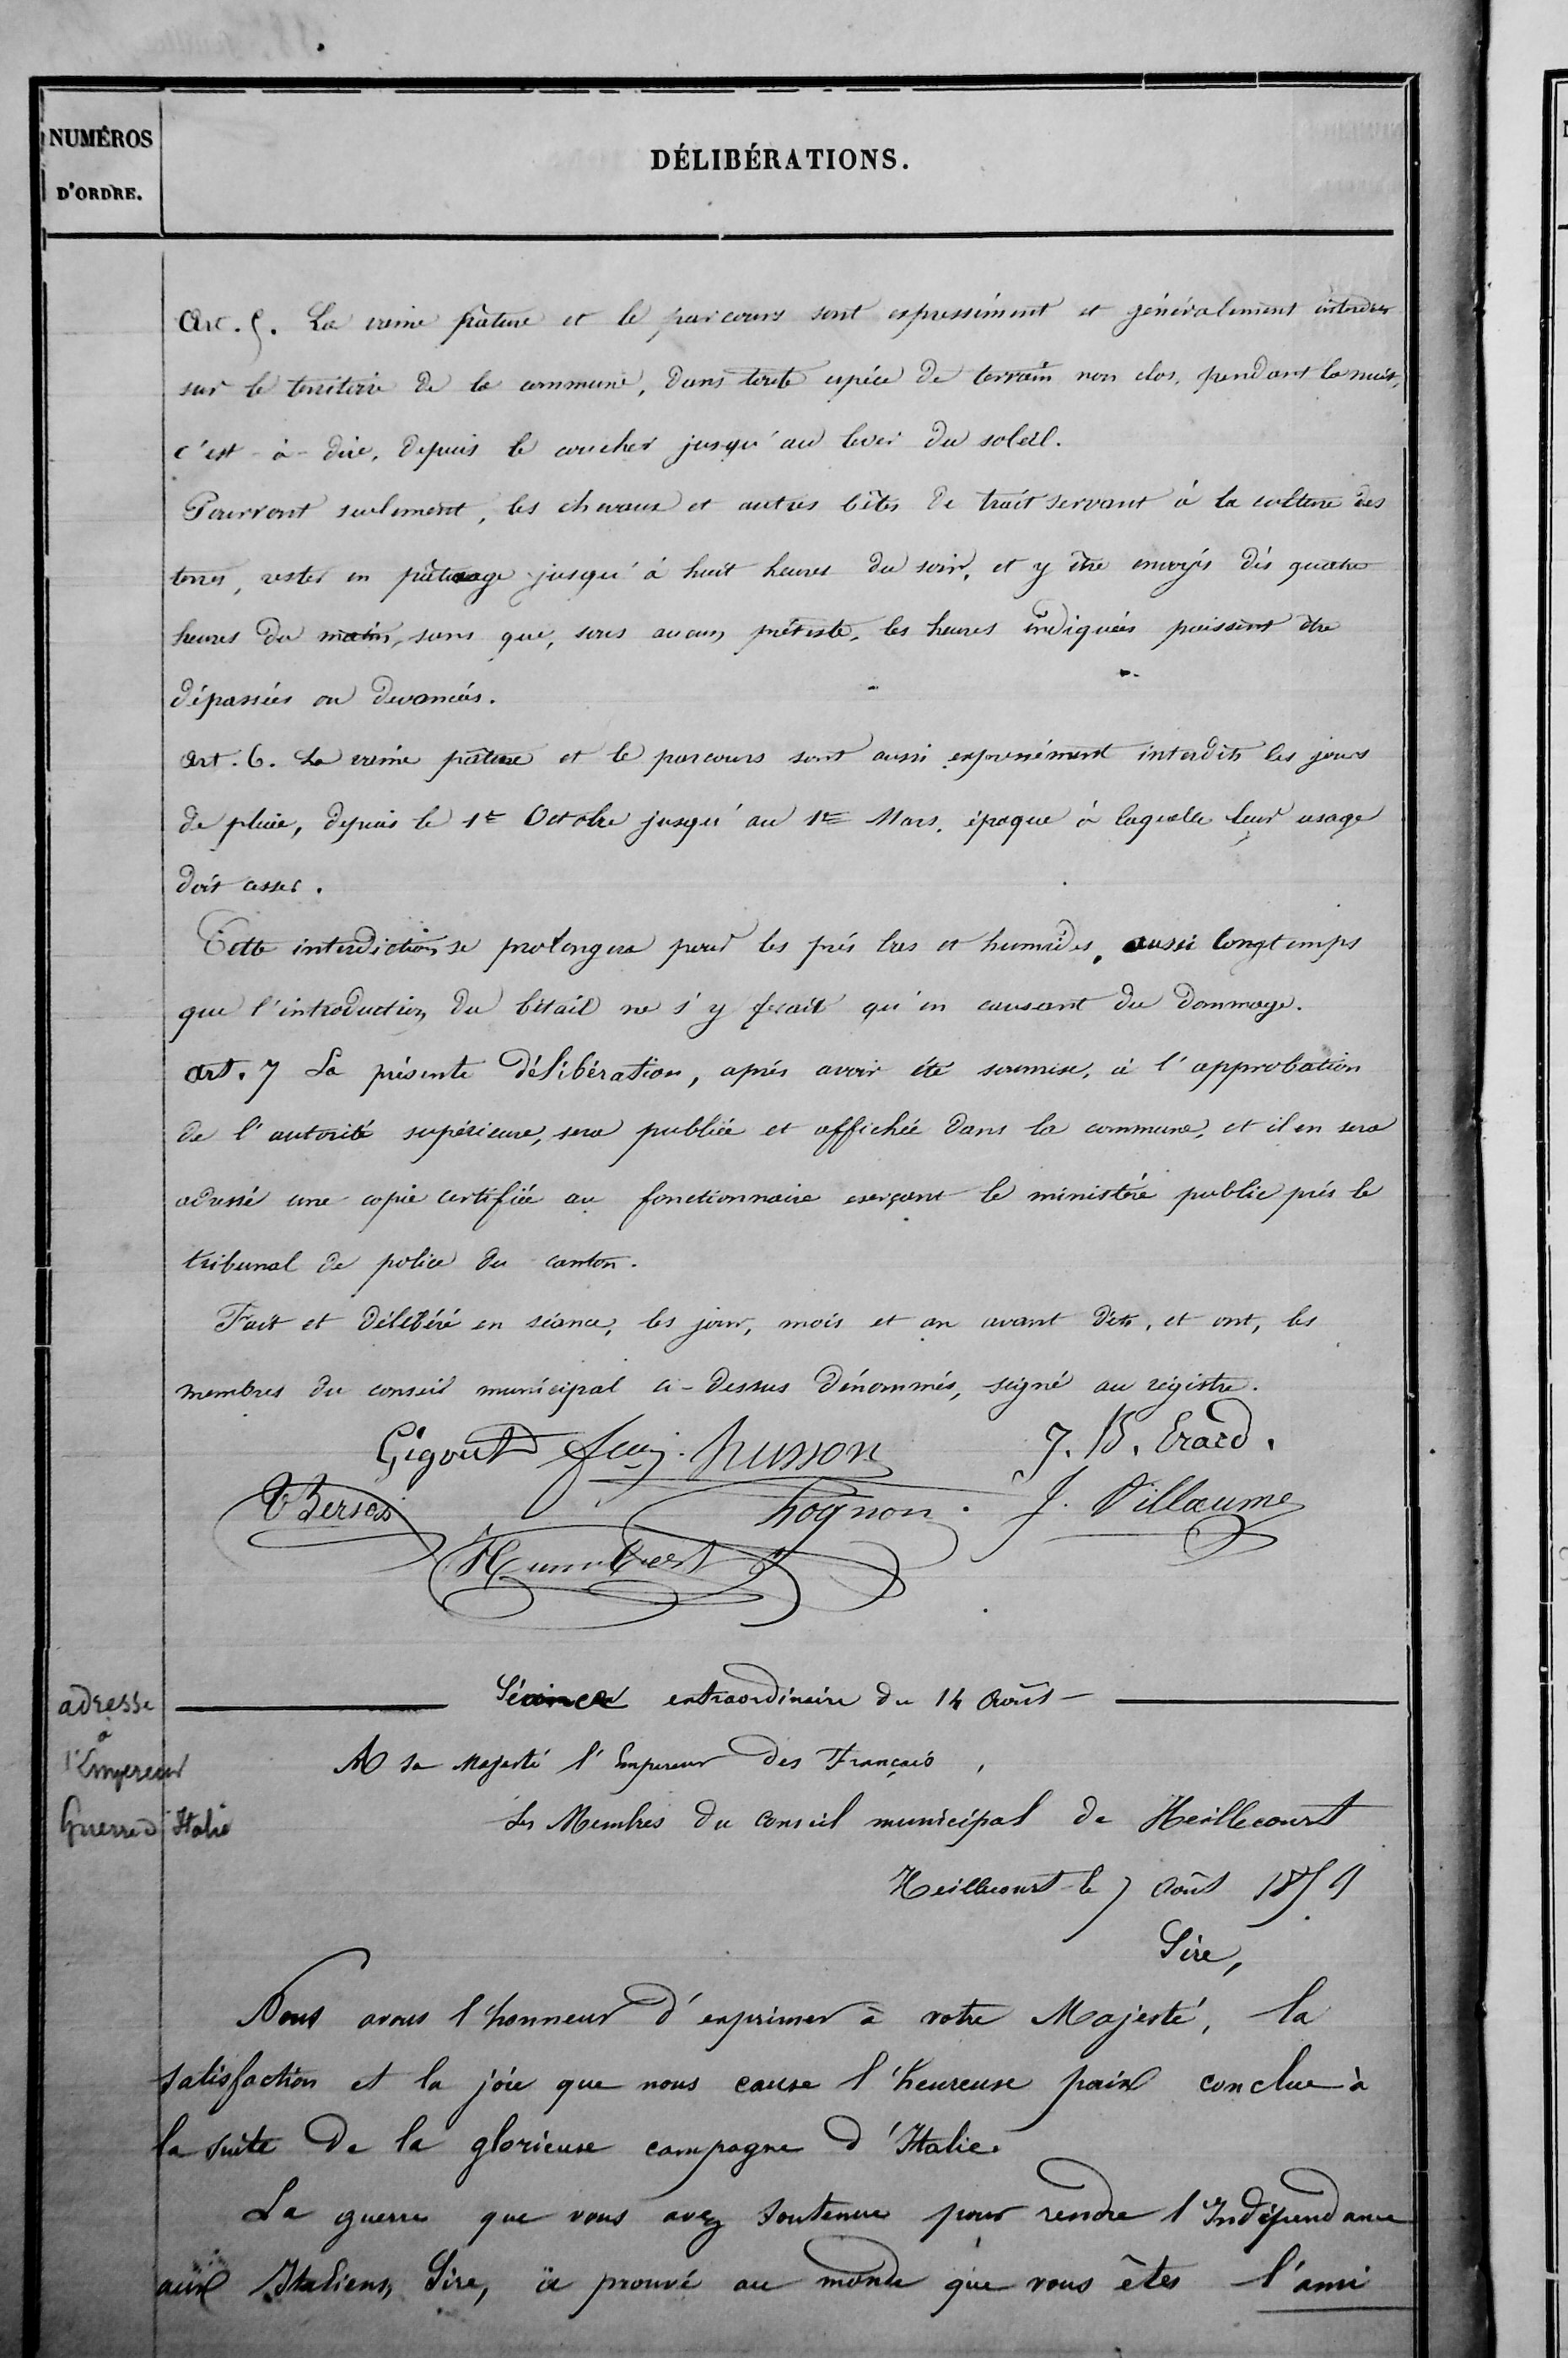 NUMÉROS
D'ORDRE.
DÉLIBÉRATIONS.
Art. 5. La vaine pâture et le parcours sont expressément et généralement interdits
sur le territoire de la commune, dans toute espèce de terrain non clos, pendant la nuit,
c'est-à-dire, depuis le coucher jusqu'au lever du soleil.
Pourront seulement, les chevaux et autres bêtes de trait servant à la culture des
terres, rester en pâturage jusqu'à huit heures du soir, et y être envoyés dès quatre
heures du matin, sans que, sous aucun prétexte, les heures indiquées puissent être
dépassées ou devancées.
Art. 6. La vaine pâture et le parcours sont aussi expressément interdits les jours
de pluie, depuis le 1er Octobre jusqu'au 1er Mars, époque à laquelle leur usage
doit cesser.
Cette interdiction se prolongera pour les prés bas et humides, aussi longtemps
que l'introduction du bétail ne s'y ferait qu'en causant du dommage.
art. 7 La présente délibération, après avoir été soumise, à l'approbation
de l'autorité supérieure, sera publiée et affichée dans la commune, et il en sera
adressé une copie certifiée au fonctionnaire exerçant le ministère public près le
tribunal de police du canton.
Fait et délibéré en séance, les jour, mois et an avant dits, et ont, les
membres du conseil municipal ci-dessus dénommés, signé au registre.
Gigout husson J. B. Erard.
hognon. J. Villaume
Humbert
Séance extraordinaire du 14 Août
adresse
à
l'Empereur
Guerre d'Italie
A sa Majesté l'Empereur des Français,
Les Membres du Conseil municipal de Heillecourt
Heillecourt le 7 Août 1859
Sire,
Nous avons l'honneur d'exprimer à votre Majesté, la
satisfaction et la joie que nous cause l'heureuse paix conclue à
la suite de la glorieuse campagne d'Italie.
La guerre que vous avez soutenue pour rendre l'Indépendance
aux Italiens, Sire, a prouvé au monde que vous êtes l'ami